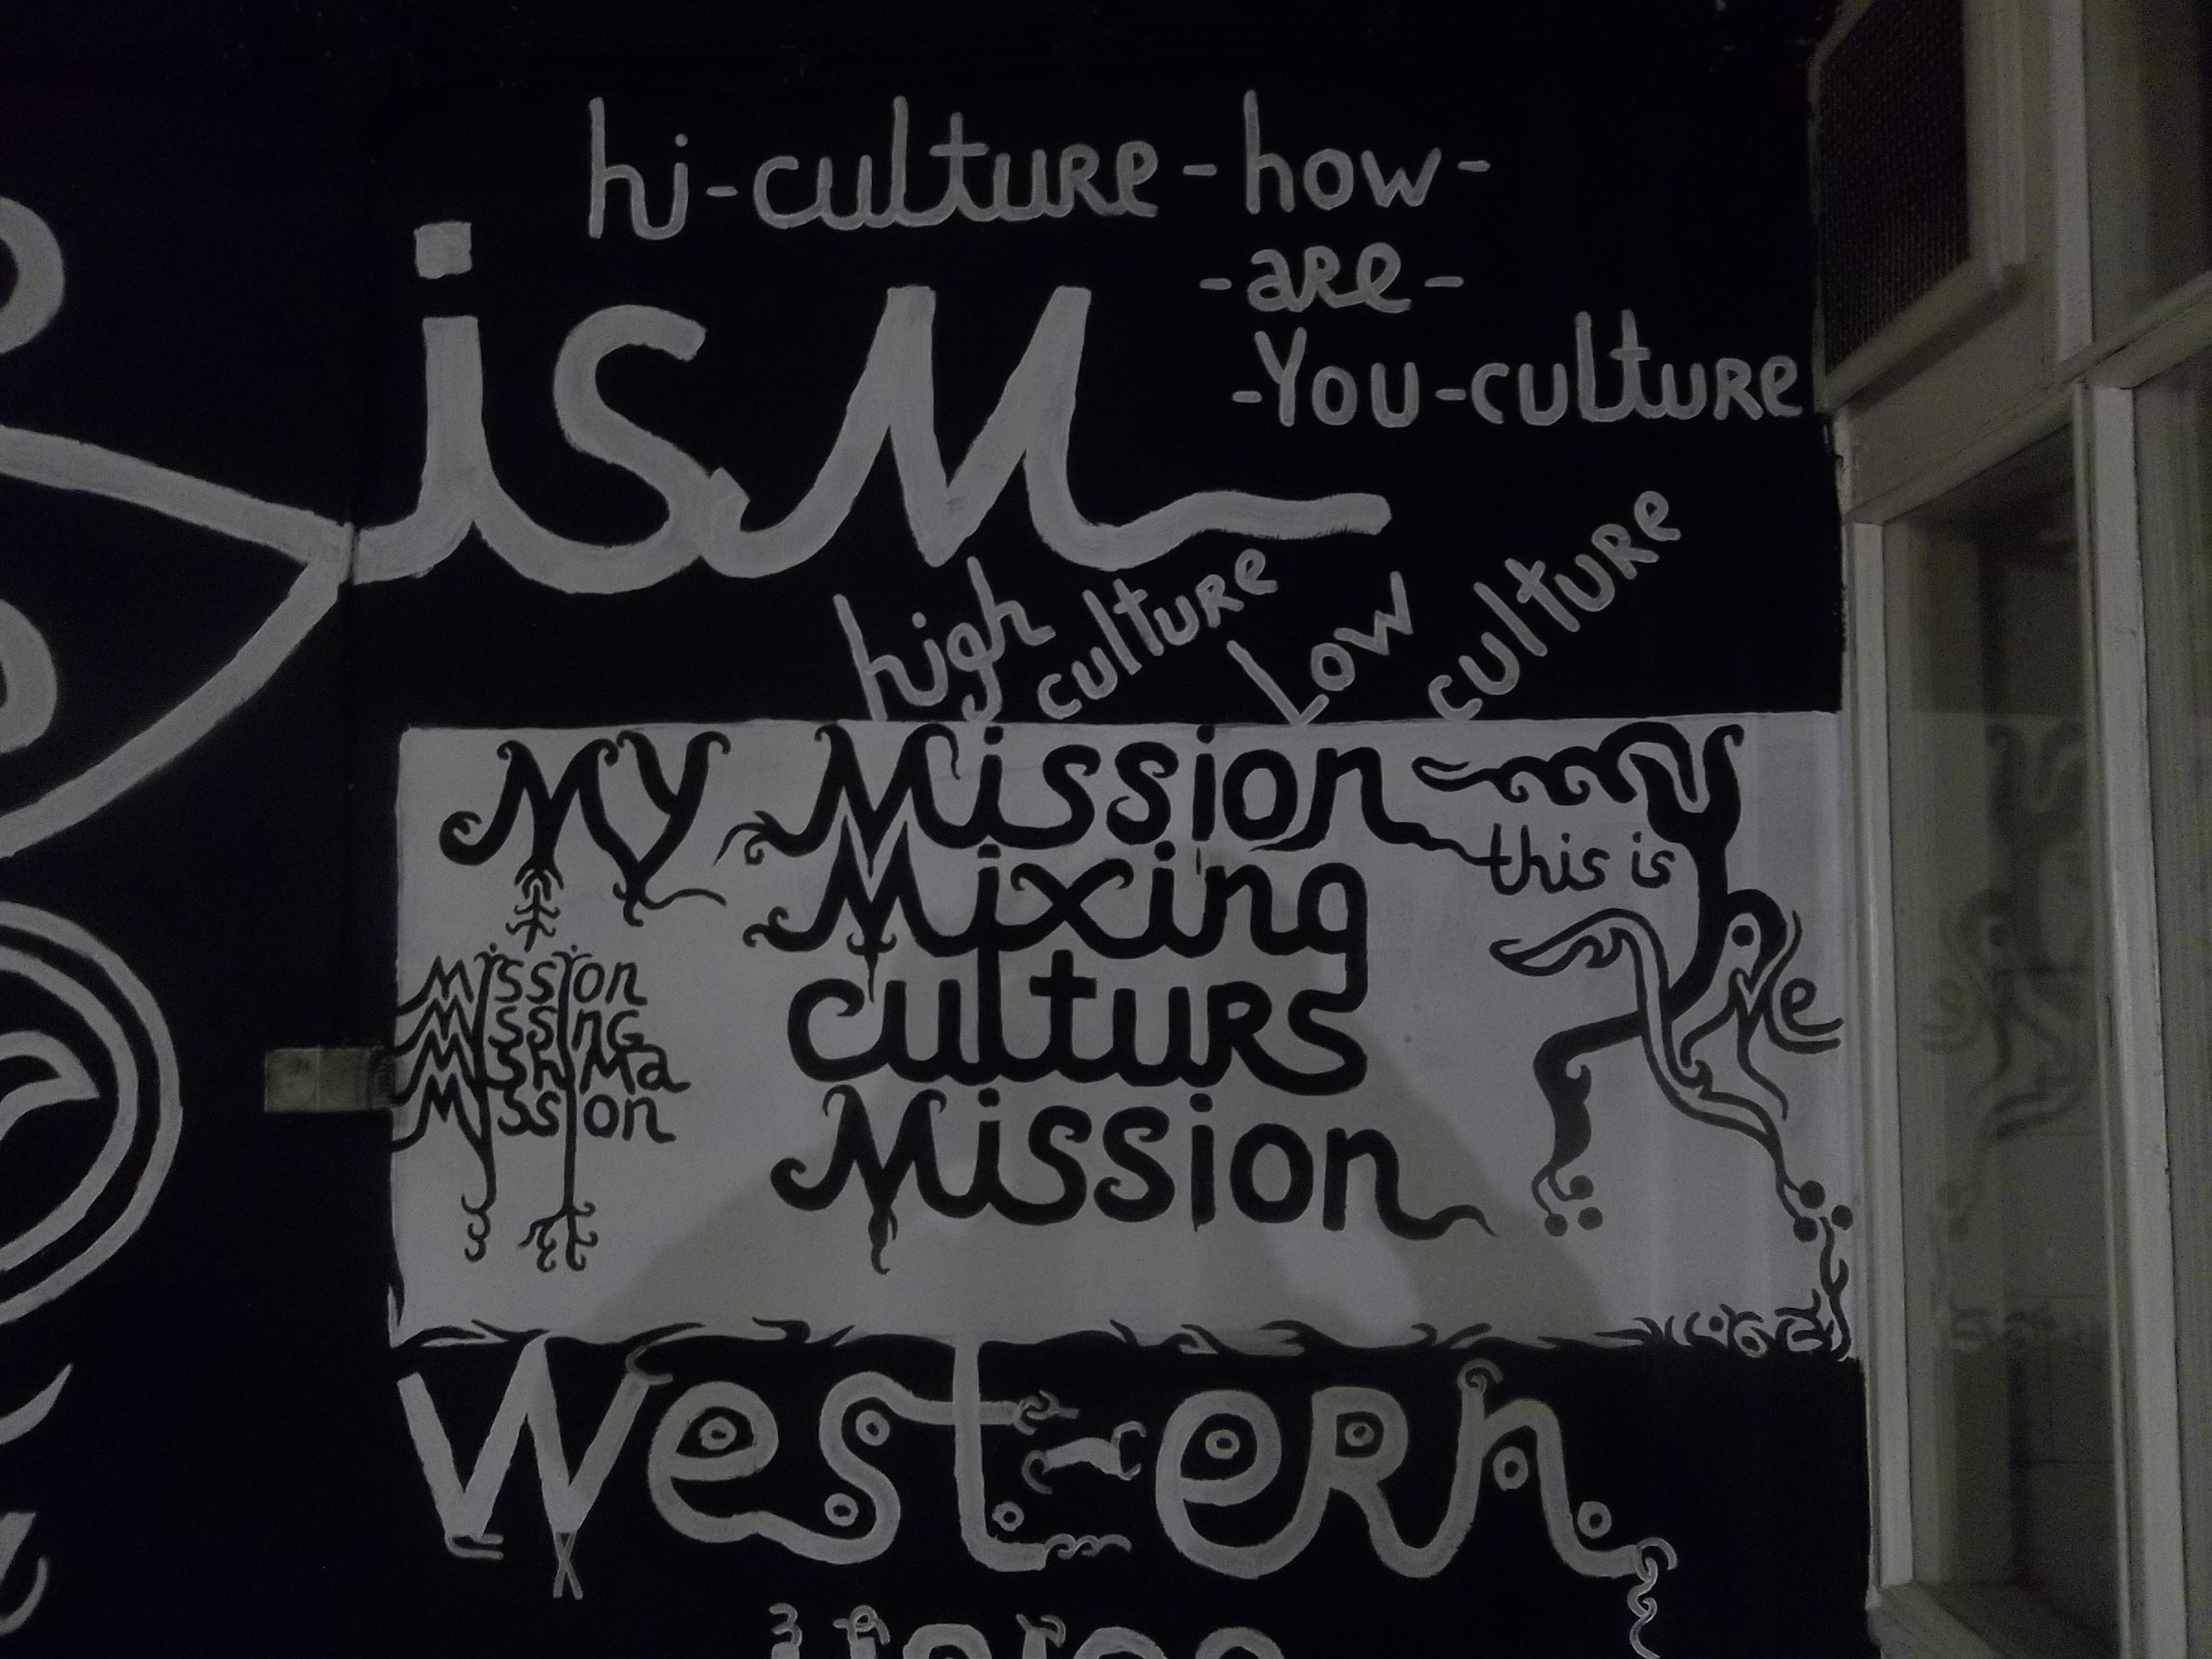 hi-culture-how-
-are-
-You-culture
isM
high culture Low culture
MY Mission
this is
Me
Mixing
culturs
Mission
Mission
Missing
Mish Ma
Mission
West-ern